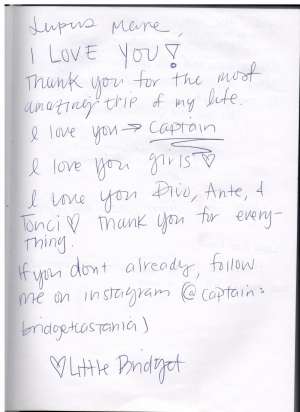 Lupus Mare,
I LOVE YOU!
Thank you for the most
amazing trip of my life.
I love you → Captain
I love you girls ♡
I love you Divo, Ante, &
Tonci ♡ Thank you for every-
thing.
If you dont already, follow
me on instagram (@captain:
bridgetcastania)
♡ Little Bridget